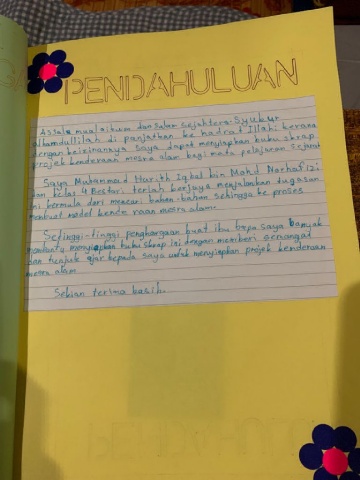 PENDAHULUAN
Assalamualaikum dan salam sejahtera. Syukur
alhamdulillah di panjatkan ke hadrat Illahi kerana
dengan keizinannya saya dapat menyiapkan buku skrap
projek kenderaan mesra alam bagi mata pelajaran sejarah
Saya Muhammad Harith Iqbal bin Mohd Norhafizi
dari kelas 4 Bestari telah berjaya menjalankan tugasan
ini bermula dari mencari bahan-bahan sehingga ke proses
membuat model kenderaan mesra alam.
Setinggi-tinggi penghargaan buat ibu bapa saya banyak
membantu menyiapkan buku skrap ini dengan memberi semangat
dan tunjuk ajar kepada saya untuk menyiapkan projek kenderaan
mesra alam
Sekian terima kasih.